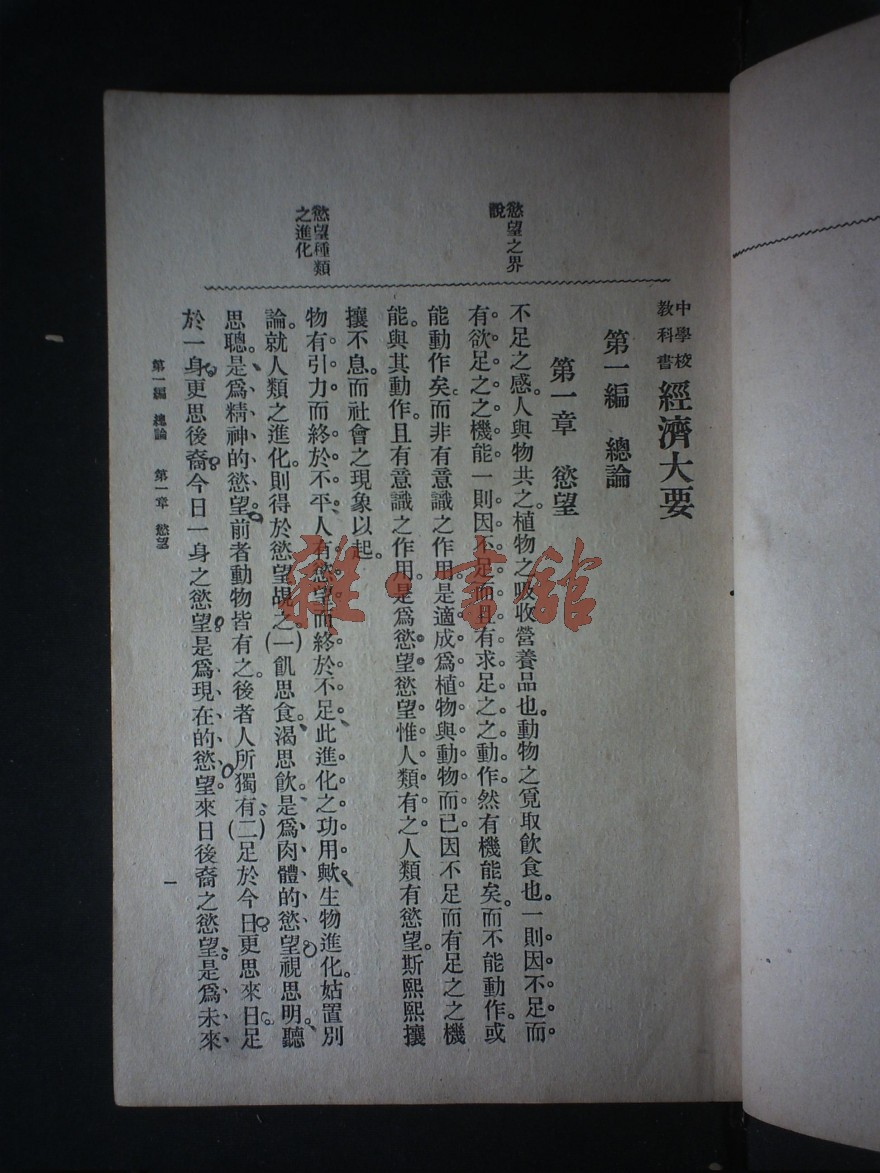 中學校
教科書
經濟大要
第一編　總論
第一章　慾望
慾望之界
說
不足之感。人與物共之。植物之吸收營養品也。動物之覓取飲食也。一則因不足而
有欲足之之機能一則因不足而且有求足之之動作。然有機能矣。而不能動作。或
能動作矣。而非有意識之作用。是適成爲植物與動物而已因不足而有足之之機
能。與其動作。且有意識之作用。是爲慾望。慾望惟人類有之。人類有慾望。斯熙熙攘
攘不息。而社會之現象以起。
慾望種類
之進化
物有引力而終於不平、人有慾望而終於不足、此進化之功用歟、生物進化。姑置別
論。就人類之進化。則得於慾望覘之。(一)飢思食。渴思飲。是爲肉體的慾望。視思明。聽
思聰。是爲精神的慾望。前者動物皆有之。後者人所獨有。(二)足於今日。更思來日。足
於一身。更思後裔。今日一身之慾望。是爲現在的慾望。來日後裔之慾望。是爲未來
第一編　總論　第一章　慾望
一
雜·書館